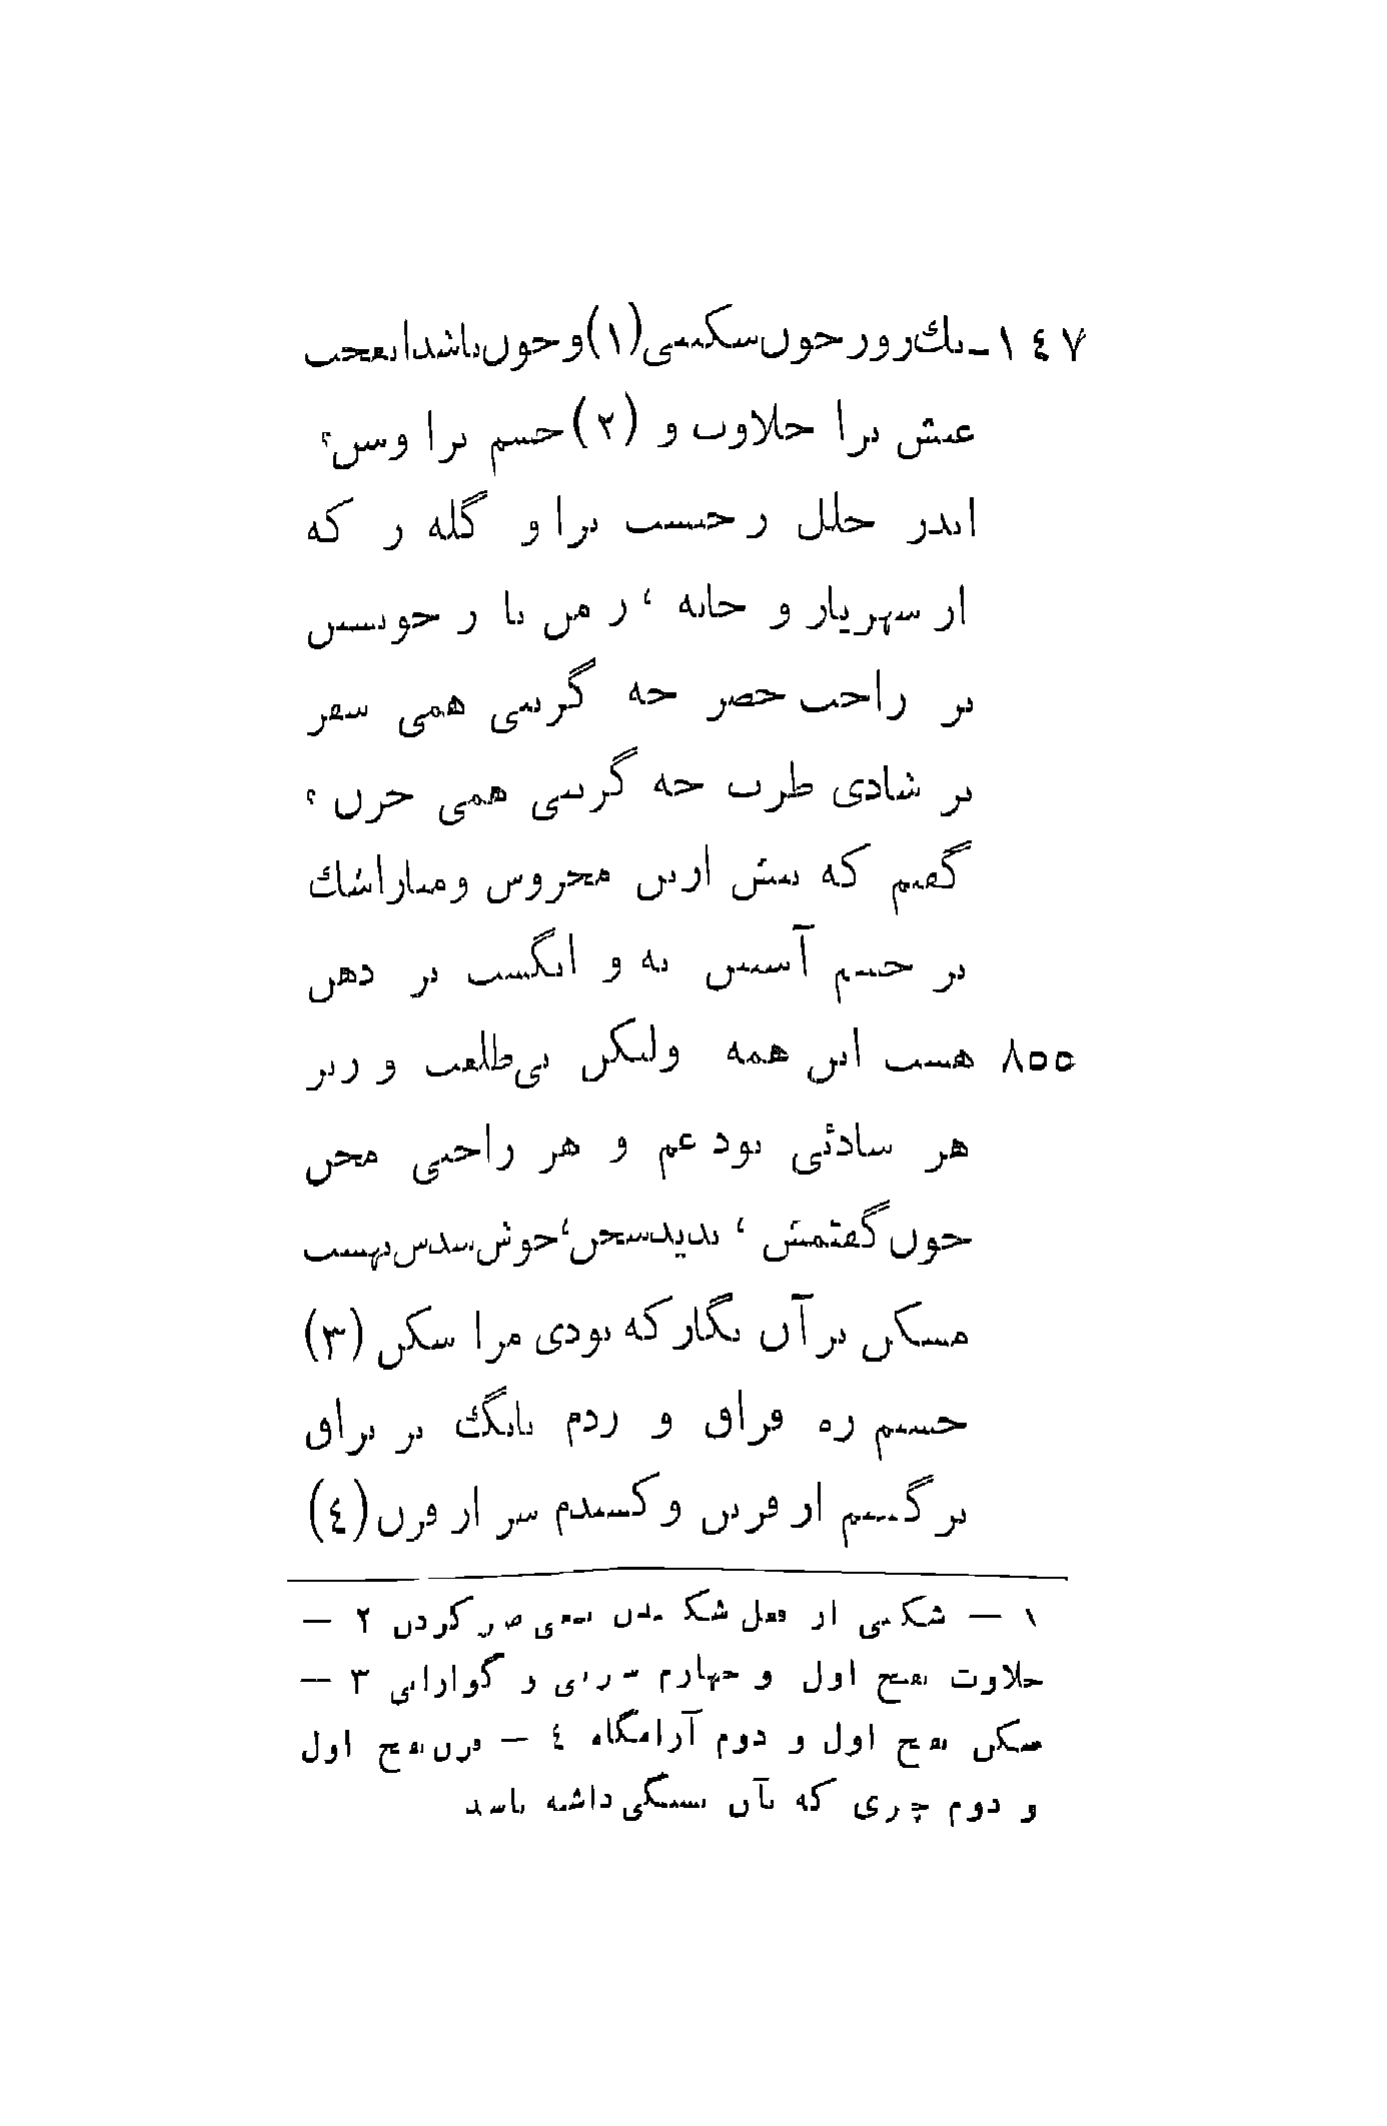 ۱٤۷ـ یك روز چون شكیبی (۱) و چون باشد ای عجب
عیش ترا حلاوت و (۲) چشم ترا وسن؟
اندر حلل ز چیست ترا و گله ز كه
از شهریار و خانه ، ز من یا ز خویشتن
بر راحت حضر چه گزینی همی سفر
بر شادی طرب چه گزینی همی حزن ؟
گفتم كه بیش ازین مخروش و مبار اشك
بر چشم آستین نه و انگشت بر دهن
۸۵۵ هست این همه ولیكن بی‌طلعت وزیر
هر شادئی بود غم و هر راحتی محن
چون گفتمش ، بدید سخن ، خوش شدش بهشت
مسكن بر آن نگار كه بودی مرا سكن (۳)
جستم ره فراق و زدم بانگ بر براق
برگشتم از قرین و كشیدم سر از قرن (٤)
۱ — شكیبی از فعل شكیبیدن بمعنی صبر كردن ۲ —
حلاوت بفتح اول و چهارم شیرینی و گوارایی ۳ —
سكن بفتح اول و دوم آرامگاه ٤ — قرن بفتح اول
و دوم چیزی كه بآن بستگی داشته باشد